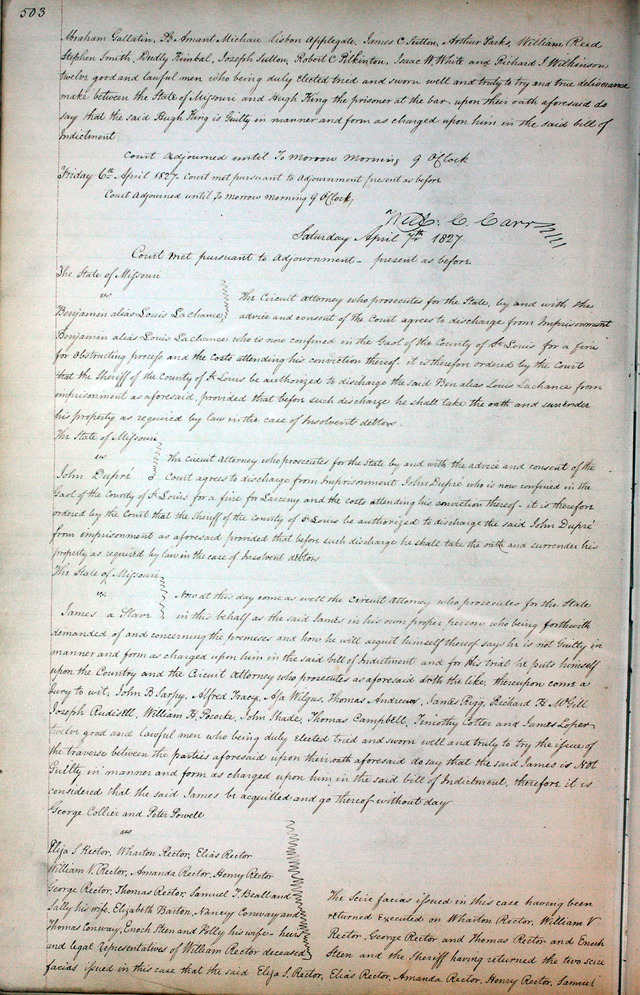 503
Abraham Gallatin, St Amant Michau Lisbon Applegate, James C Sutton, Arthur Jacks, William Reed
Stephen Smith, Dudly Kimbal, Joseph Sutton, Robert C Pilkinton, Isaac W. White and Richard J Wilkinson
twelve good and lawful men who being duly elected tried and sworn well and truly to try and true deliverance
make between the State of Missouri and Hugh King the prisoner at the bar, upon their oath aforesaid do
say that the said Hugh King is Guilty in manner and form as charged upon him in the said bill of
Indictment
Court Adjourned until To Morrow Morning 9 OClock
Friday 6th April 1827. Court met pursuant to Adjournment present as before
Court Adjourned until To Morrow Morning 9 OClock,
Wm. C. Carr
Saturday April 7th 1827
Court met pursuant to Adjournment - present as before
The State of Missouri
vs
Benjamin alias Louis Lachance
The Circuit Attorney who prosecutes for the State, by and with the
advice and consent of the Court agrees to discharge from Imprisonment
Benjamin alias Louis Lachance who is now confined in the Gaol of the County of St Louis for a fine
for Obstructing process and the costs attending his conviction thereof - it is therefore ordered by the Court
that the Sheriff of the County of St Louis be authorized to discharge the said Ben alias Louis Lachance from
imprisonment as aforesaid, provided that before such discharge he shall take the oath and surrender
his property as required by law in the case of Insolvent debtors.
The State of Missouri
vs
John Dupré
The Circuit Attorney who prosecutes for the State by and with the advice and consent of the
Court agrees to discharge from Imprisonment John Dupré who is now confined in the
Gaol of the County of St Louis for a fine for Larceny and the costs attending his conviction thereof - it is therefore
ordered by the Court that the Sheriff of the County of St Louis be authorized to discharge the said John Dupré
from imprisonment as aforesaid provided that before such discharge he shall take the oath and surrender his
property as required by law in the case of Insolvent debtors
The State of Missouri
vs.
James a Slave
Now at this day come as well the Circuit Attorney who prosecutes for the State
in this behalf as the said James in his own proper person who being forthwith
demanded of and concerning the premises and how he will acquit himself thereof says he is not Guilty in
manner and form as charged upon him in the said bill of Indictment and for His trial he puts himself
upon the Country and the Circuit Attorney who prosecutes as aforesaid doth the like, thereupon come a
Jury to wit, John B Sarpy, Alfred Tracy, Asa Wilgus, Thomas Andrews, James Rigg, Richard H. McGill
Joseph Rudisell, William H. Pococke, John Shade, Thomas Campbell, Timothy Cotter and James Loper
twelve good and lawful men who being duly elected tried and sworn well and truly to try the issue of
the traverse between the parties aforesaid upon their oath aforesaid do say that the said James is Not
Guilty in manner and form as charged upon him in the said bill of Indictment, therefore it is
considered that the said James be acquitted and go thereof without day
George Collier and Peter Powell
vs
Elija S Rector, Wharton Rector, Elias Rector
William V. Rector, Amanda Rector, Henry Rector
George Rector, Thomas Rector, Samuel T. Beall and
Sally his wife, Elizabeth Barton, Nancy Conway and
Thomas Conway, Enoch Steen and Polly his wife - heirs
and legal Representatives of William Rector deceased
The Scire facias issued in this case having been
returned Executed on Wharton Rector, William V
Rector, George Rector and Thomas Rector and Enoch
Steen and the Sheriff having returned the two scire
facias issued in this case that the said Elija S. Rector, Elias Rector, Amanda Rector, Henry Rector, Samuel